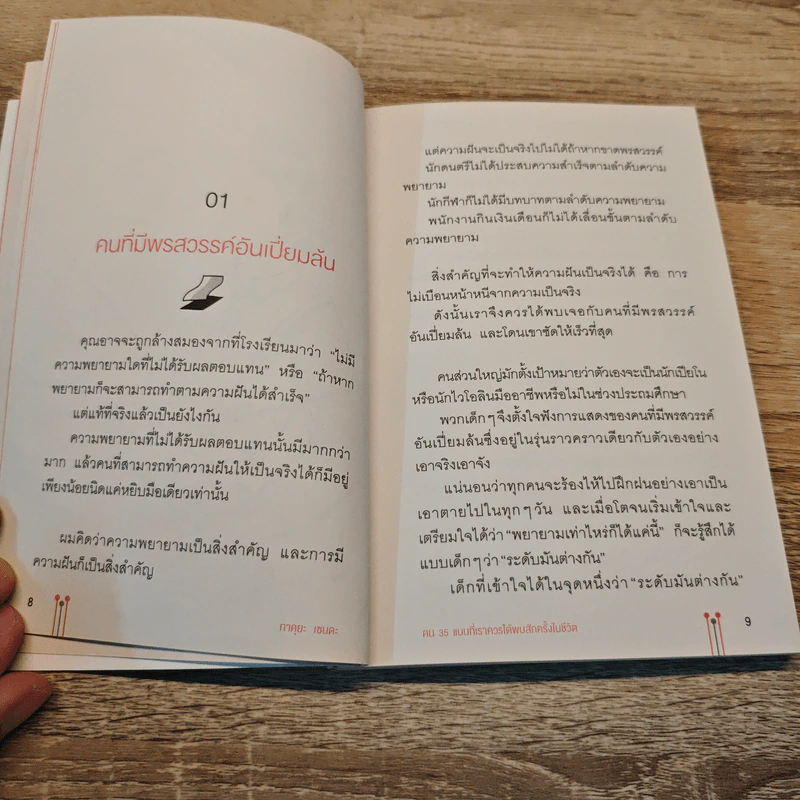 01
คนที่มีพรสวรรค์อันเปี่ยมล้น
คุณอาจจะถูกล้างสมองจากที่โรงเรียนมาว่า “ไม่มี
ความพยายามใดที่ไม่ได้รับผลตอบแทน” หรือ “ถ้าหาก
พยายามก็จะสามารถทำตามความฝันได้สำเร็จ”
แต่แท้ที่จริงแล้วเป็นยังไงกัน
ความพยายามที่ไม่ได้รับผลตอบแทนนั้นมีมากกว่า
มาก แล้วคนที่สามารถทำความฝันให้เป็นจริงได้ก็มีอยู่
เพียงน้อยนิดแค่หยิบมือเดียวเท่านั้น
ผมคิดว่าความพยายามเป็นสิ่งสำคัญ และการมี
ความฝันก็เป็นสิ่งสำคัญ
8
ทาคุยะ เซนดะ
แต่ความฝันจะเป็นจริงไปไม่ได้ถ้าหากขาดพรสวรรค์
นักดนตรีไม่ได้ประสบความสำเร็จตามลำดับความ
พยายาม
นักกีฬาก็ไม่ได้มีบทบาทตามลำดับความพยายาม
พนักงานกินเงินเดือนก็ไม่ได้เลื่อนขั้นตามลำดับ
ความพยายาม
สิ่งสำคัญที่จะทำให้ความฝันเป็นจริงได้ คือ การ
ไม่เบือนหน้าหนีจากความเป็นจริง
ดังนั้นเราจึงควรได้พบเจอกับคนที่มีพรสวรรค์
อันเปี่ยมล้น และโดนเขาซัดให้เร็วที่สุด
คนส่วนใหญ่มักตั้งเป้าหมายว่าตัวเองจะเป็นนักเปียโน
หรือนักไวโอลินมืออาชีพหรือไม่ในช่วงประถมศึกษา
พวกเด็กๆ จึงตั้งใจฟังการแสดงของคนที่มีพรสวรรค์
อันเปี่ยมล้นซึ่งอยู่ในรุ่นราวคราวเดียวกับตัวเองอย่าง
เอาจริงเอาจัง
แน่นอนว่าทุกคนจะร้องไห้ไปฝึกฝนอย่างเอาเป็น
เอาตายไปในทุกๆ วัน และเมื่อโตจนเริ่มเข้าใจและ
เตรียมใจได้ว่า “พยายามเท่าไหร่ก็ได้แค่นี้” ก็จะรู้สึกได้
แบบเด็กๆ ว่า “ระดับมันต่างกัน”
เด็กที่เข้าใจได้ในจุดหนึ่งว่า “ระดับมันต่างกัน”
คน 35 แบบที่เราควรได้พบสักครั้งในชีวิต
9